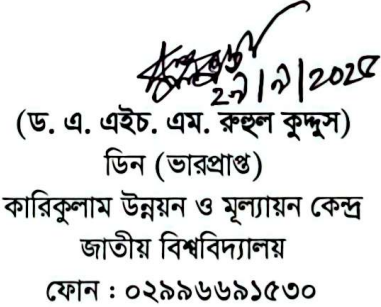 ২৭|৭|2025
(ড. এ. এইচ. এম. রুহুল কুদ্দুস)
ডিন (ভারপ্রাপ্ত)
কারিকুলাম উন্নয়ন ও মূল্যায়ন কেন্দ্র
জাতীয় বিশ্ববিদ্যালয়
ফোন : ০২৯৯৬৬৯১৫৩০